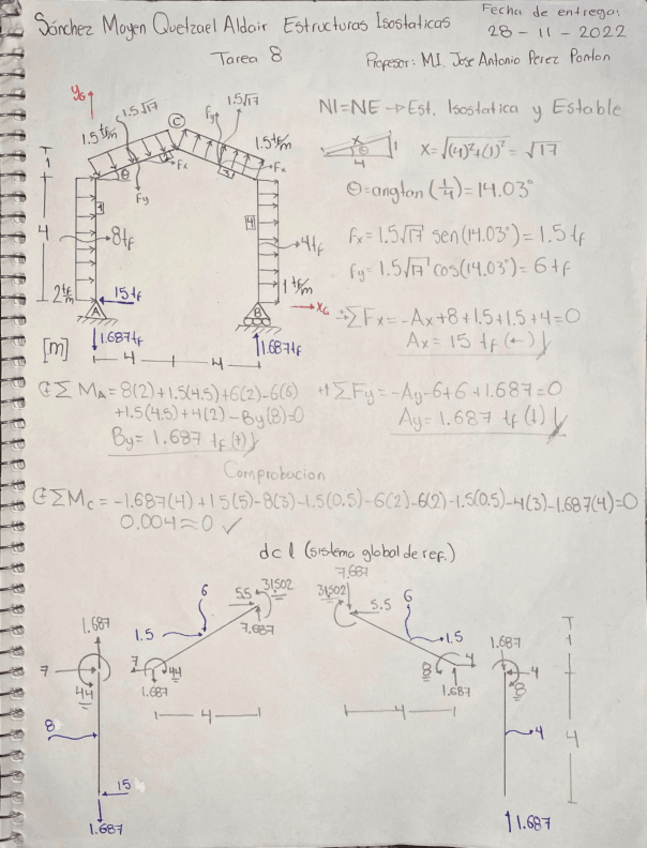 Sánchez Moyen Quetzael Aldair Estructuras Isostaticas
Fecha de entrega:
28-11-2022
Tarea 8
Profesor: MI. Jose Antonio Perez Ponton
NI=NE → Est. Isostatica y Estable
X=√(4)²+(1)² = √17
θ=angtan (1/4)=14.03°
Fx=1.5√17 sen(14.03°)=1.5 tf
Fy=1.5√17 cos(14.03°)=6tf
x
1
θ
4
yG
1.5√17
C
Fy
1.5√17
1.5 tf/m
1.5 tf/m
Fx
Fx
θ
Fy
1
4
8tf
4
4tf
2 tf/m
15tf
1 tf/m
xG
A
B
1.687tf
1.687tf
[m]
4
4
+→ΣFx=-Ax+8+1.5+1.5+4=0
Ax= 15 tf (←)
ΣMA=8(2)+1.5(4.5)+6(2)-6(6)
+1.5(4.5)+4(2)-By(8)=0
By=1.687 tf(↑)
+↑ΣFy=-Ay-6+6+1.687=0
Ay=1.687 tf(↓)
Comprobacion
ΣMC=-1.687(4)+15(5)-8(3)-1.5(0.5)-6(2)-6(2)-1.5(0.5)-4(3)-1.687(4)=0
0.004≈0 ✓
dcl (sistema global de ref.)
1.687
7
44
8
15
1.687
6
5.5
31.502
1.5
7.687
7
44
1.687
4
7.687
31.502
5.5
6
1.5
8
4
1.687
4
1.687
4
8
4
1.687
1
4